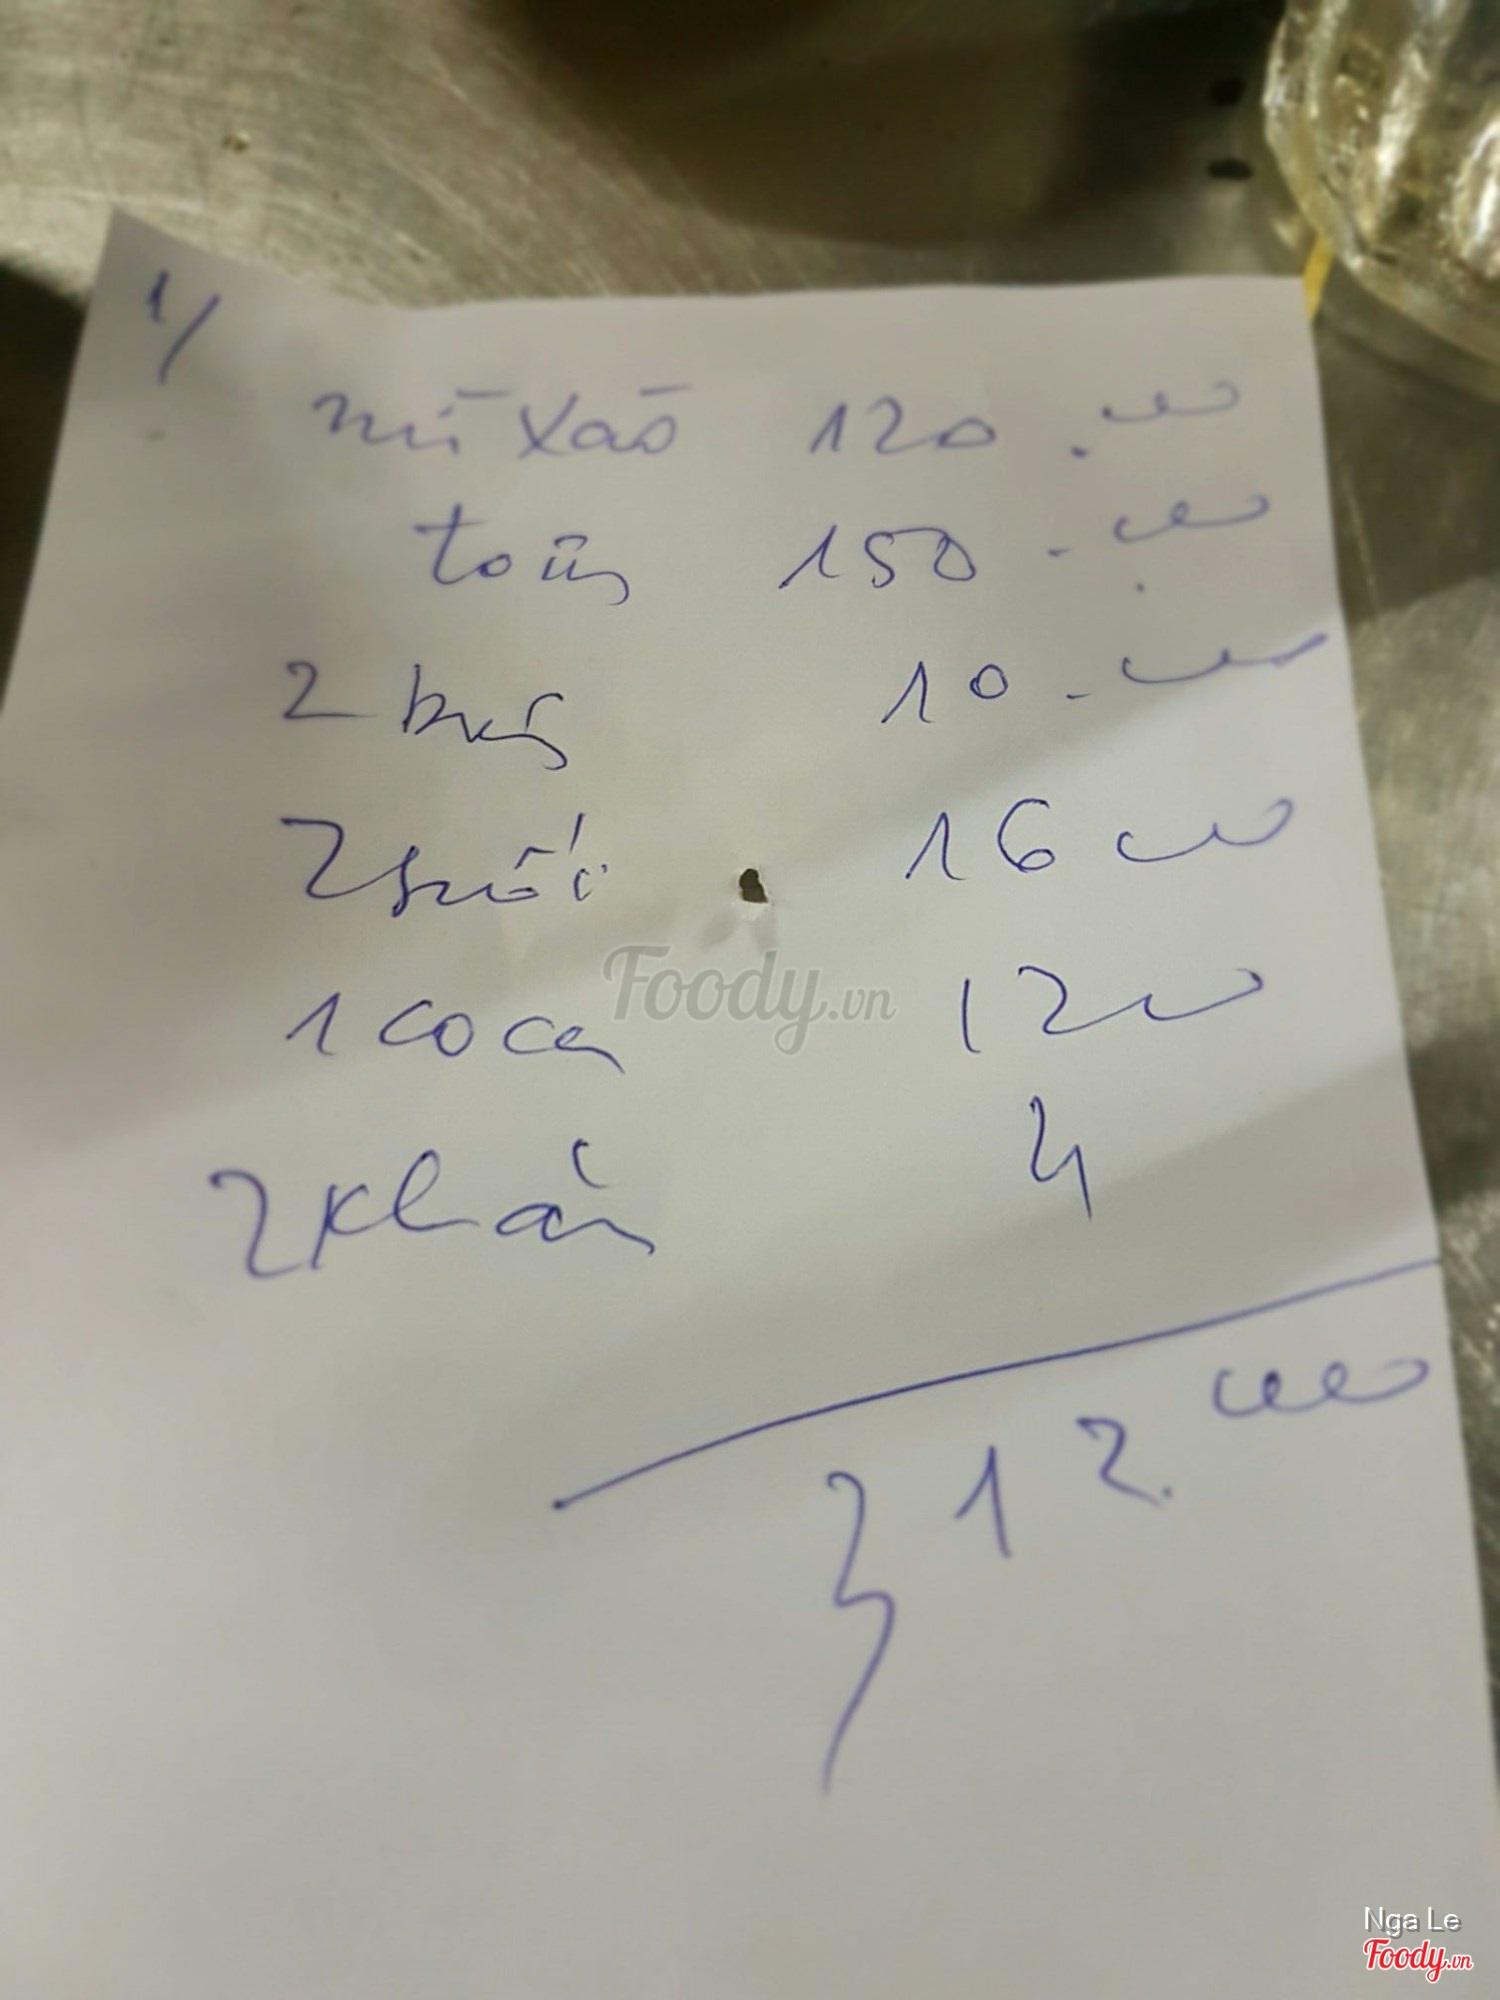 1/
mì xào 120.000
tôm 150.000
2 10.000
2 suối 16 000
1 coca 12 000
2 khăn 4
312.000
Foody.vn
Nga Le
Foody.vn